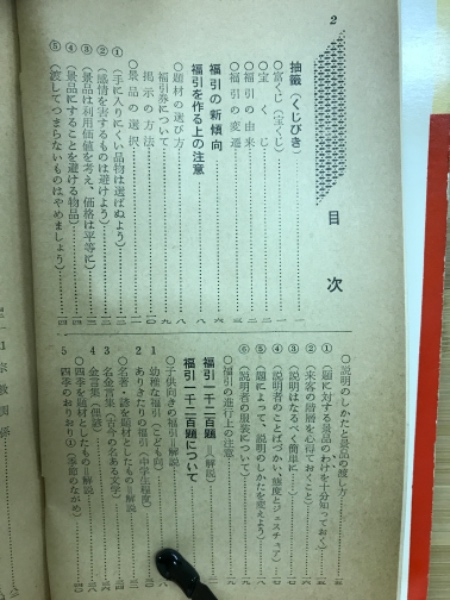 2
目次
抽籤（くじびき）
○富くじ（宝くじ）
○宝くじ
○福引の由来
○福引の変遷
福引の新傾向
福引を作る上の注意
○題材の選び方
福引券について
掲示の方法
○景品の選択
①（手に入りにくい品物は選ばぬよう）
②（感情を害するものは避けよう）
③（景品は利用価値を考え、価格は平等に）
④（景品にすることを避ける物品）
⑤（渡してつまらないものはやめましょう）
○説明のしかたと景品の渡し方
①（題に対する景品のわけを十分知っておく）
②（来客の階層を心得ておくこと）
③（説明はなるべく簡単に）
④（説明者のことばづかい、態度とジェスチュア）
⑤（題によって、説明のしかたを変えよう）
⑥（説明者の服装について）
○福引の進行上の注意
福引一千二百題（=解説）
福引一千二百題について
○子供向きの福引=解説
1 幼稚な福引（こども向）
2 ありきたりの福引（中学生程度）
○名著・諺を題材としたもの=解説
3 名金言集（古今の名ある文学）
4 金言集（俚諺）
○四季を題材としたもの=解説
5 四季のおりおり①（季節のながめ）